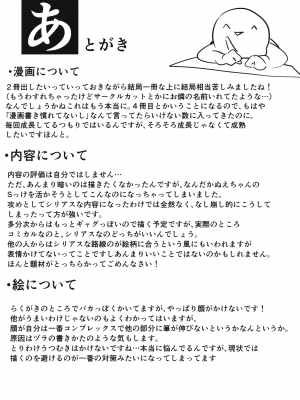 あとがき
・漫画について
２冊出したいっていっておきながら結局一冊な上に結局相当苦しみましたね！
（もうわすれちゃったけどサークルカットとかにお燐の名前いれてたような…）
なんでしょうかねこれはもう本当に。４冊目とかいうことになるので、もはや
「漫画書き慣れてないし」なんて言ってたらいけない数に入ってきたのに。
毎回成長してるつもりではいるんですが、そろそろ成長じゃなくて成熟
したいですほんと。
・内容について
内容の評価は自分ではしません…
ただ、あんまり暗いのは描きたくなかったんですが、なんだかぬえちゃんの
Ｓっけを活かそうとしてこんなのになっちゃってしまいました。
攻めとしてシリアスな内容になったわけでは全然なく、なし崩し的にこうして
しまったって方が強いです。
多分次からはもっとギャグっぽいので描く予定ですが、実際のところ
コミカルなのと、シリアスなのどっちがいいんでしょう。
他の人からはシリアスな路線のが絵柄に合うという風にもいわれますが
表情かけてないってことですしあんまりいいことではないのかもしれません。
ほんと題材がとっちらかっててごめんなさい！
・絵について
らくがきのところでバカっぽくかいてますが、やっぱ顔がかけないです！
他がうまいわけじゃないのもよくわかってはいますが、
顔が自分は一番コンプレックスで他の部分に筆が伸びないというかなんというか。
原因はヅラの書きかたのような気もします。
とりわけうつむきはかけないですね…本当に悩んでるんですが、現状では
描くのを避けるのが一番の対策みたいになってしまってます